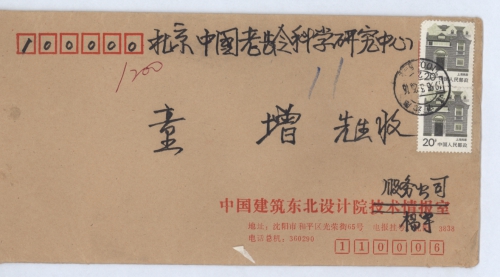 100000 北京中国老龄科学研究中心
1200
11
童 增 先生收
20分 中国人民邮政
服务公司
中国建筑东北设计院技术情报室
杨军
地址:沈阳市和平区光荣街65号 电报挂号: 3638
电话总机:360260
110006